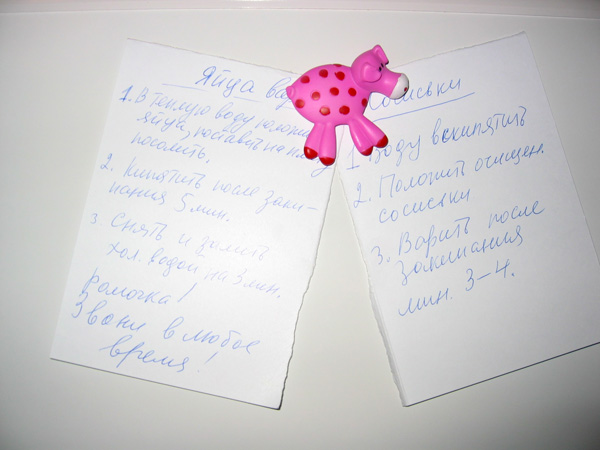 Яйца ва
1. В теплую воду положи
яйца, поставить на пли
посолить.
2. Кипятить после заки-
пания 5 мин.
3. Снять и залить
хол. водой на 3 мин.
Ромочка!
Звони в любое
время!
Сосиски
1. Воду вскипятить
2. Положить очищен.
сосиски
3. Варить после
закипания
мин. 3-4.